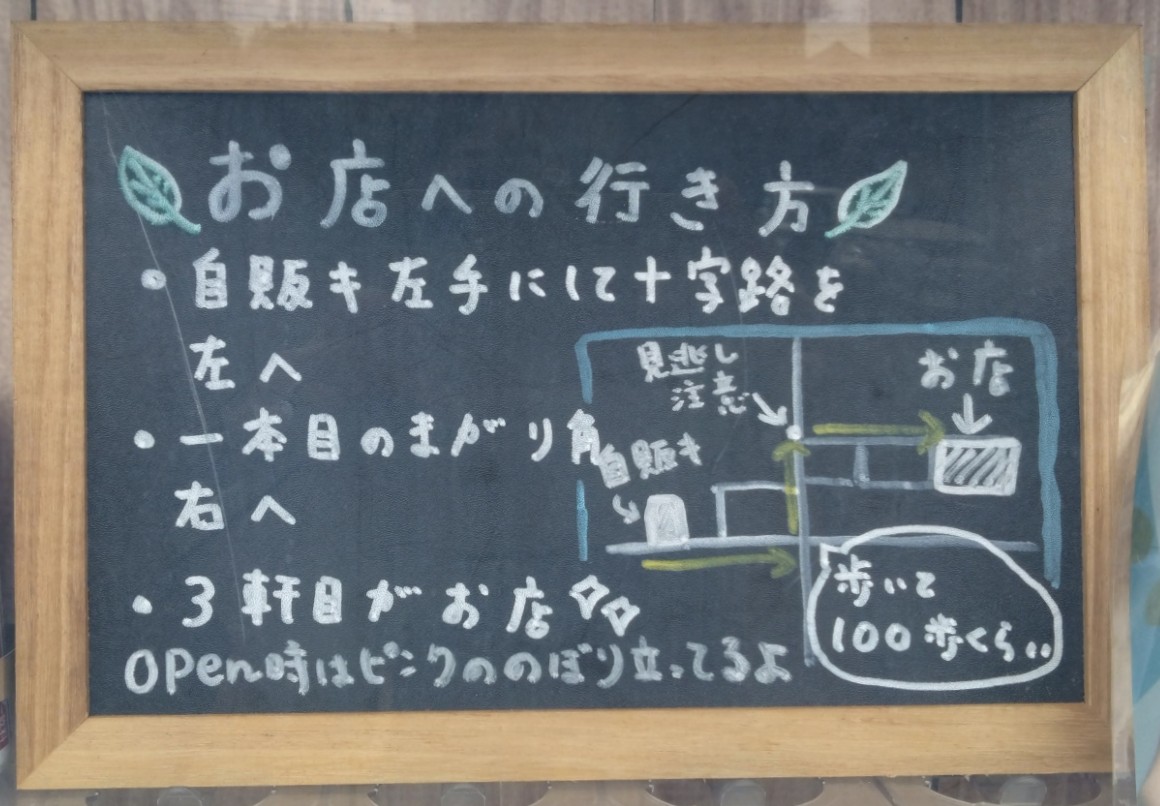 お店への行き方
・自販キ左手にして十字路を
左へ
・一本目のまがり角
右へ
・3軒目がお店
OPen時はピンクののぼり立ってるよ
見逃し
注意
お店
自販キ
歩いて
100歩くらい